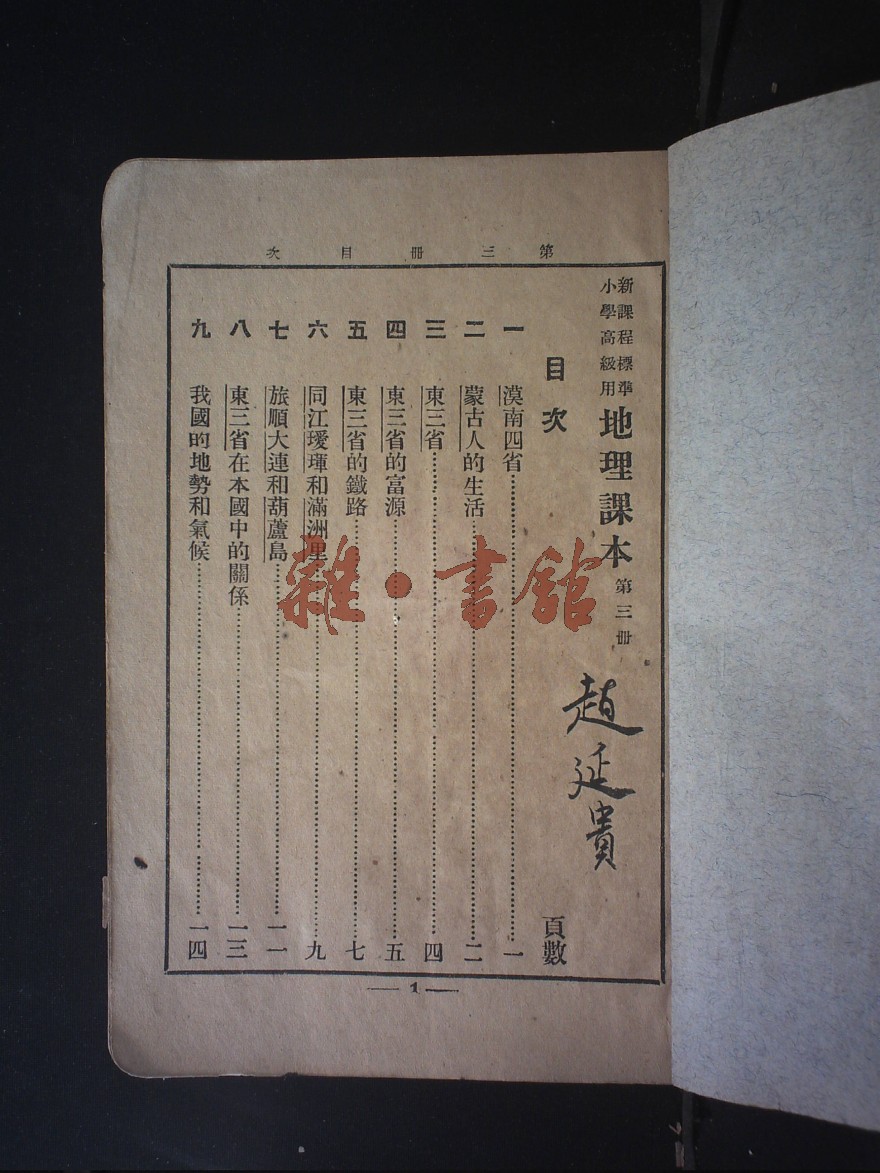 第三冊目次
新課程標準
小學高級用
地理課本 第三冊
趙延貴
目次 頁數
一 漠南四省 一
二 蒙古人的生活 二
三 東三省 四
四 東三省的富源 五
五 東三省的鐵路 七
六 同江璦琿和滿洲里 九
七 旅順大連和葫蘆島 一一
八 東三省在本國中的關係 一三
九 我國的地勢和氣候 一四
1
雜·書館